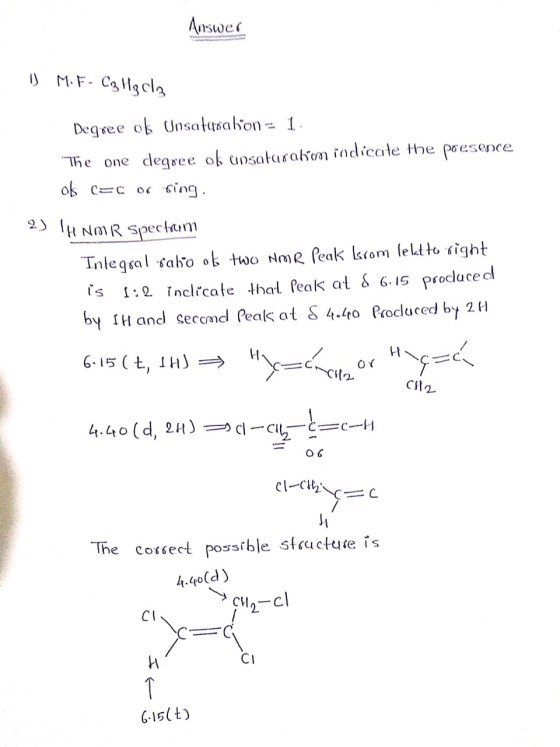 Answer
1) M.F- C3H3Cl3
Degree of Unsaturation = 1.
The one degree of unsaturation indicate the presence
of C=C or ring.
2) 1H NMR Spectrum
Integral ratio of two NMR Peak from left to right
is 1:2 indicate that Peak at δ 6.15 produced
by 1H and second Peak at δ 4.40 Produced by 2H
6.15 (t, 1H) ⇒ H C=C CH2 or H C=C CH2
4.40 (d, 2H) ⇒ Cl-CH2-C=C-H
or
Cl-CH2 C=C
H
The correct possible structure is
4.40(d)
CH2-Cl
Cl
C=C
H Cl
↑
6.15(t)